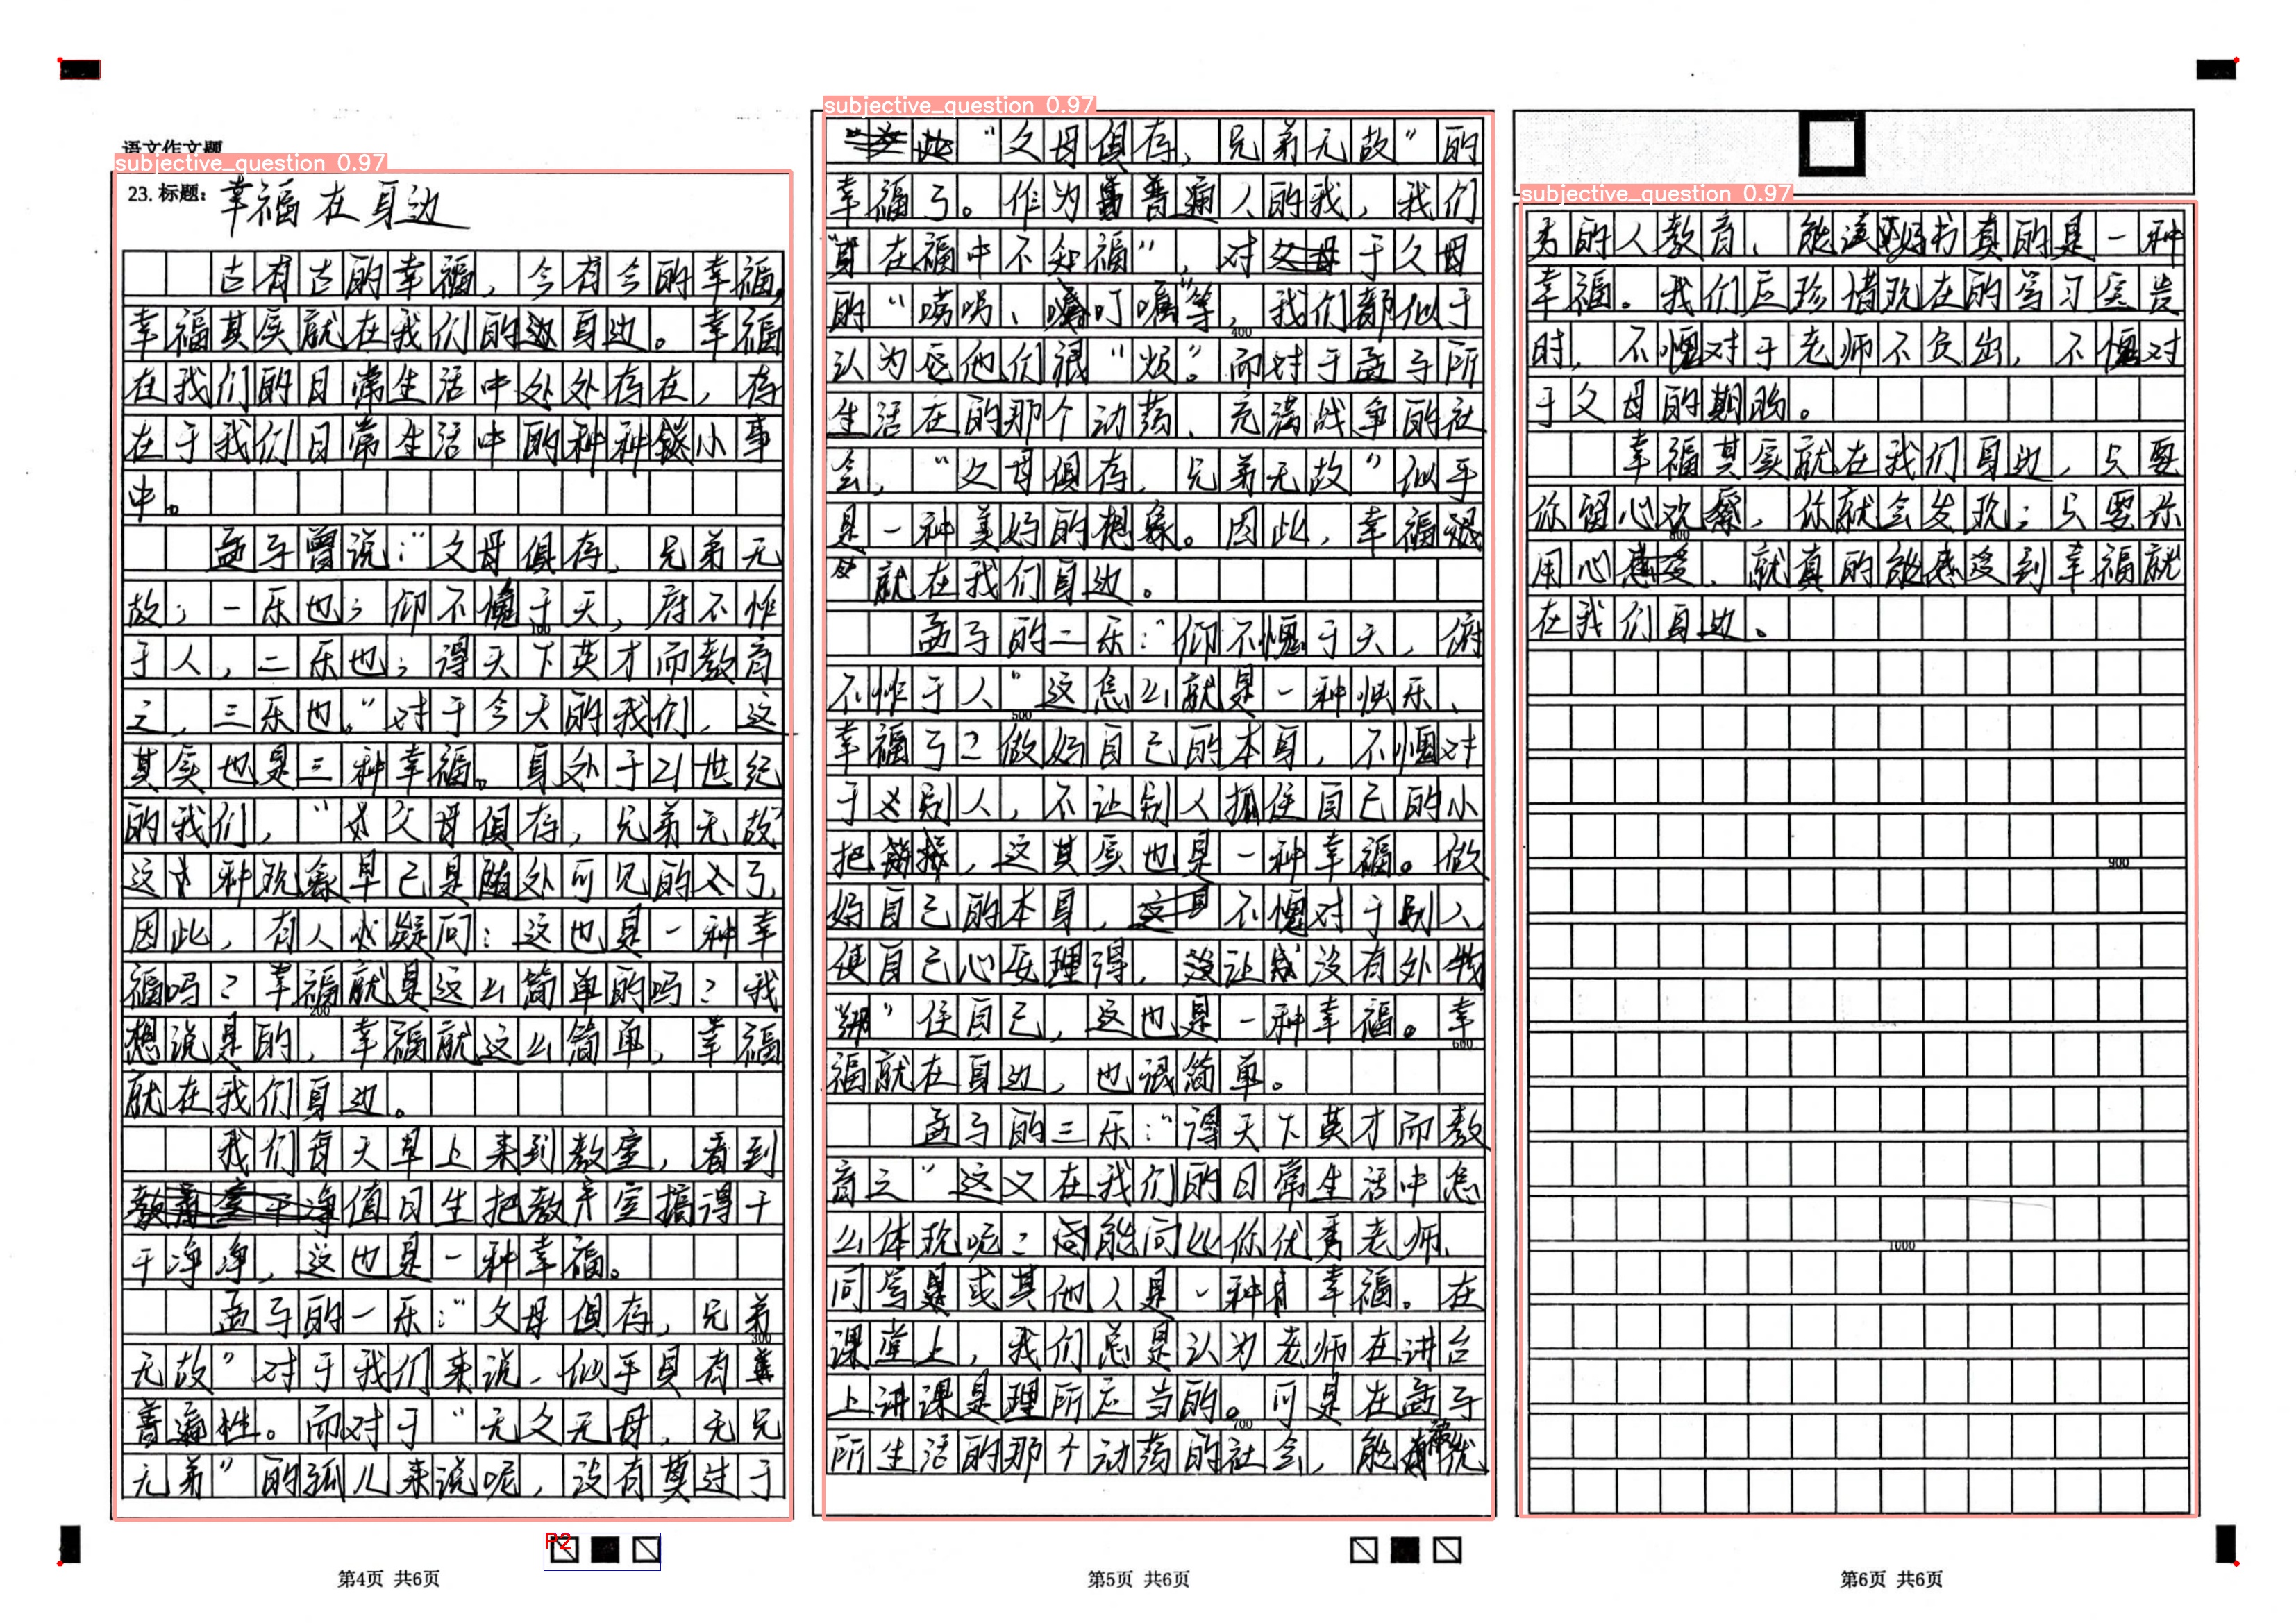 语文作文题
subjective_question 0.97
23. 标题：幸福在身边
古有古的幸福，今有今的幸福，
幸福其实就在我们的身边。幸福
在我们的日常生活中处处存在，存
在于我们日常生活中的种种小事
中。
孟子曾说：“父母俱存，兄弟无
故；一乐也；仰不愧于天，府不怍
于人，二乐也；得天下英才而教育
之，三乐也。”对于今天的我们，这
100
其实也是三种幸福。身处于21世纪
的我们，“父母俱存，兄弟无故”
这种现象早已是随处可见的了，
因此，有人疑问：这也是一种幸
福吗？幸福就是这么简单的吗？我
200
想说是的，幸福就这么简单，幸福
就在我们身边。
我们每天早上来到教室，看到
值日生把教室搞得干
干净净，这也是一种幸福。
孟子的一乐：“父母俱存，兄弟
300
无故”对于我们来说，似乎具有
普遍性。而对于“无父无母，无兄
无弟”的孤儿来说呢，没有莫过于
第4页 共6页
subjective_question 0.97
“父母俱存，兄弟无故”的
幸福了。作为普通人的我，我们
“在福中不知福”，对于父母
的“唠叨、叮嘱”等，我们都似于
400
认为他们很“烦”。而对于孟子所
生活在的那个动荡、充满战争的社
会，“父母俱存，兄弟无故”似乎
是一种美好的想象。因此，幸福
就在我们身边。
孟子的二乐：“仰不愧于天，俯
不怍于人”这怎么就是一种快乐、
500
幸福了？做好自己的本身，不愧对
于别人，不让别人抓住自己的小
把，这其实也是一种幸福。做
好自己的本身，不愧对于别人，
使自己心安理得，让没有外物
“绑”住自己，这也是一种幸福。幸
600
福就在身边，也很简单。
孟子的三乐：“得天下英才而教
育之”这又在我们的日常生活中怎
么体现呢？能同比你优秀老师、
同学或其他人是一种幸福。在
课堂上，我们总是认为老师在讲台
上讲课是理所应当的。可是在孟子
700
所生活的那个动荡的社会，能被优
第5页 共6页
subjective_question 0.97
秀的人教育，能读好书真的是一种
幸福。我们应珍惜现在的学习宝贵
时，不愧对于老师不负出，不愧对
于父母的期盼。
幸福其实就在我们身边，只要
你留心观察，你就会发现；只要你
800
用心感受，就真的能感受到幸福就
在我们身边。
900
1000
第6页 共6页
P2